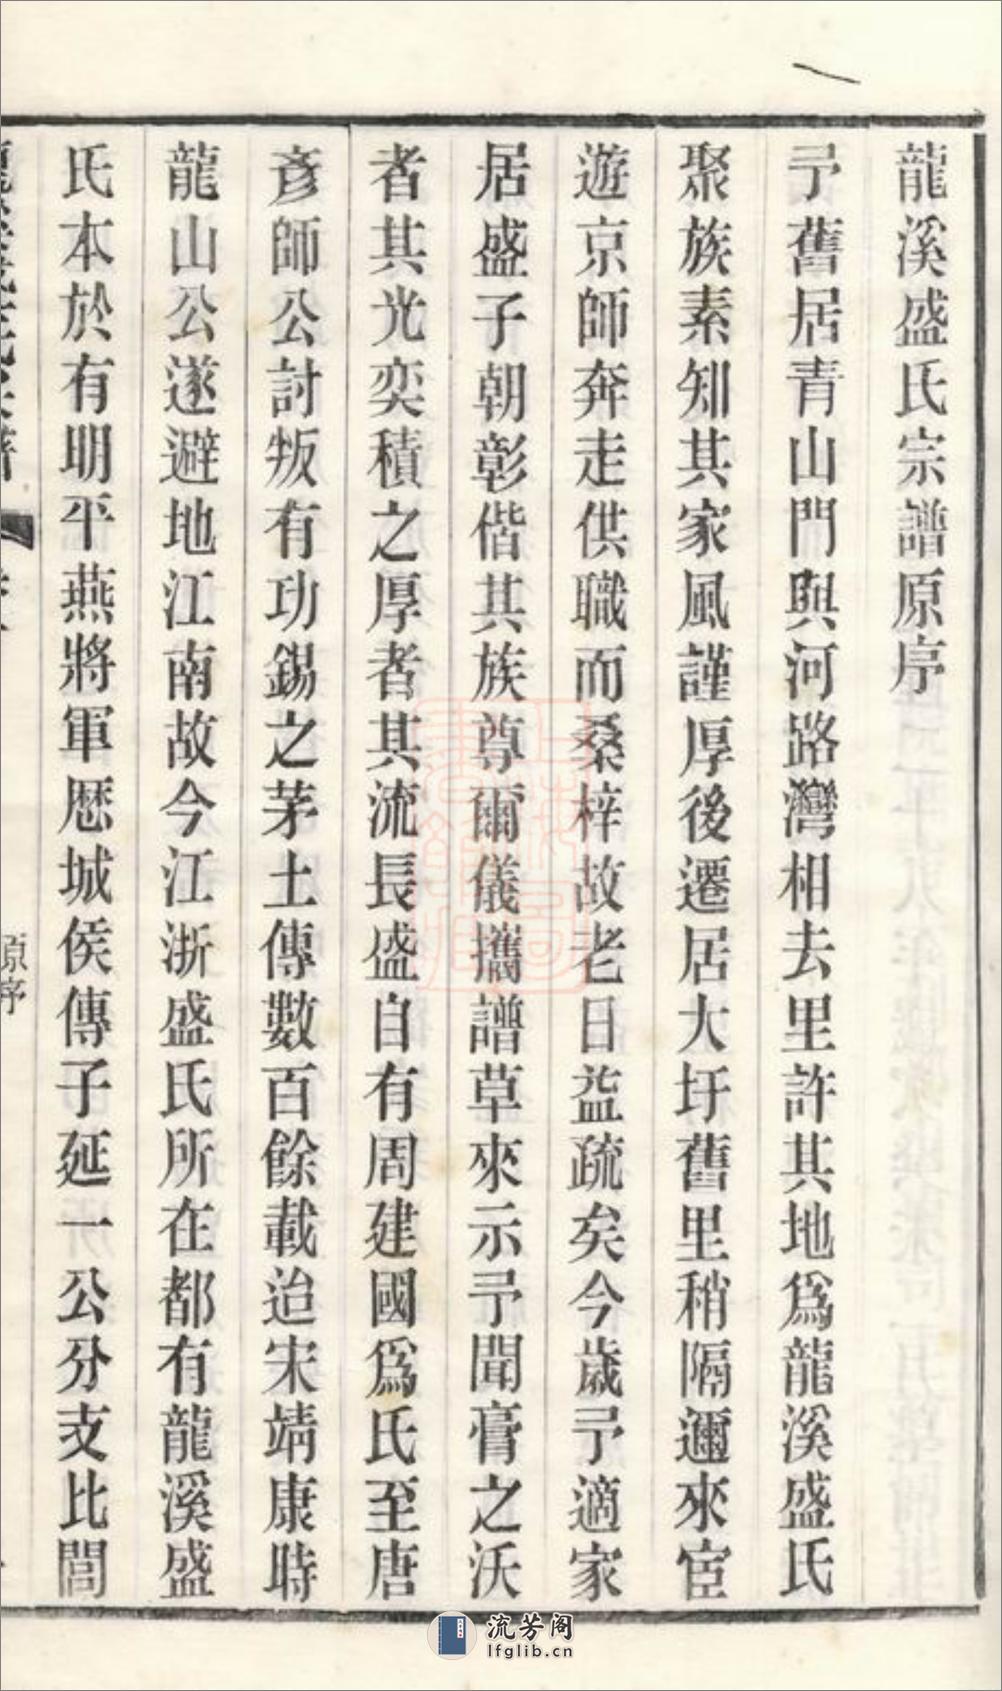 龍溪盛氏宗譜原序
予舊居青山門與河路灣相去里許其地爲龍溪盛氏
聚族素知其家風謹厚後遷居大圩舊里稍隔邇來宦
遊京師奔走供職而桑梓故老日益疏矣今歲予適家
居盛子朝彰偕其族尊爾儀攜譜草來示予聞膏之沃
者其光奕積之厚者其流長盛自有周建國爲氏至唐
彥師公討叛有功錫之茅土傳數百餘載迨宋靖康時
龍山公遂避地江南故今江浙盛氏所在都有龍溪盛
氏本於有明平燕將軍歷城侯傳子延一公分支比閭
原序
流芳阁
lfglib.cn